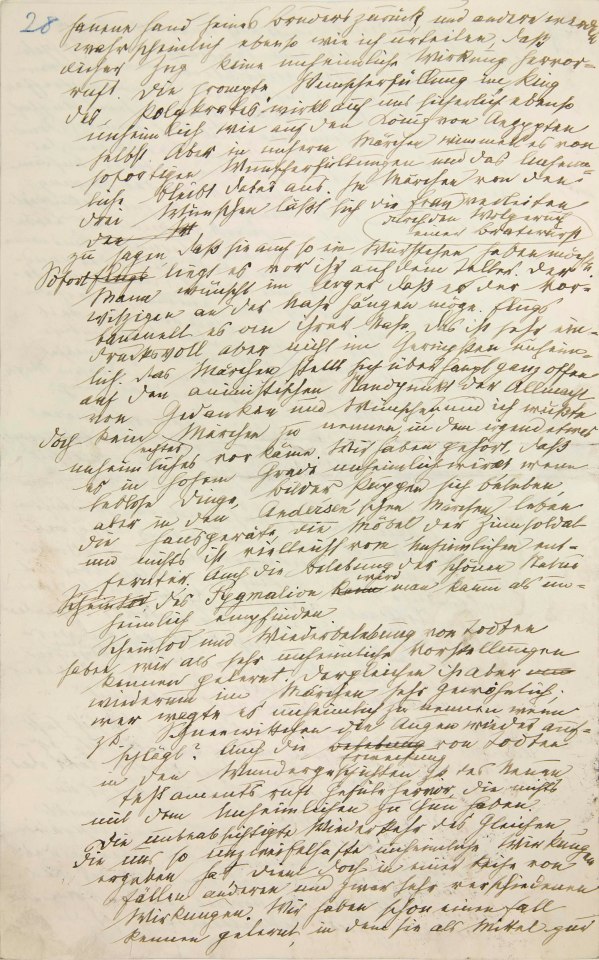 28
hauene Hand seines Bruders zurück, und andere werden
wahrscheinlich ebenso wie ich urteilen, daß
dieser Zug keine unheimliche Wirkung hervor-
ruft. Die prompte Wunscherfüllung im Ring
des Polykrates wirkt auf uns sicherlich ebenso
unheimlich wie auf den König von Aegypten
selbst. Aber in unserem Märchen wimmelt es von
sofortigen Wunscherfüllungen und das Unheim-
liche bleibt dabei aus. Im Märchen von den
drei Wünschen läßt sich die Frau verleiten
durch den Wolgeruch
einer Bratwurst
zu sagen daß sie auch so ein Würstchen haben möchte
Sofort flugs liegt es vor ihr auf dem Teller. Der
Mann wünscht im Ärger daß es der Vor-
witzigen an der Nase hängen möge. Flugs
baumelt es an ihrer Nase. Das ist sehr ein-
drucksvoll aber nicht im Geringsten unheim-
lich. Das Märchen stellt sich überhaupt ganz offen
auf den animistischen Standpunkt der Allmacht
von Gedanken und Wünschen und ich wüßte
doch kein Märchen zu nennen, in dem irgend etwas
echtes
unheimliches vorkäme. Wir haben gehört, daß
es in hohem Grade unheimlich wirkt wenn
leblose Dinge, Bilder Puppen sich beleben,
aber in den Andersenschen Märchen leben
die Hausgeräte die Möbel der Zinnsoldat
und nichts ist vielleicht vom Unheimlichen ent-
fernter. Auch die Belebung der schönen Statue
wird
Scheintod des Pygmalion kann man kaum als un-
heimlich empfinden
Scheintod und Wiederbelebung von Todten
haben wir als sehr unheimliche Vorstellungen
kennen gelernt. Dergleichen ist aber
wiederum im Märchen sehr gewöhnlich;
wer wagte es unheimlich zu nennen wenn
zB Schneewittchen die Augen wieder auf-
schlägt? Auch die Belebung von Todten
Erweckung
in den Wundergeschichten zB des Neuen
Testaments ruft Gefühle hervor, die nichts
mit dem Unheimlichen zu tun haben.
Die unbeabsichtigte Wiederkehr des Gleichen
die uns so unzweifelhafte unheimliche Wirkungen
ergeben hat dient doch in einer Reihe von
Fällen anderen und zwar sehr verschiedenen
Wirkungen. Wir haben schon einen Fall
kennen gelernt, in dem sie als Mittel zur